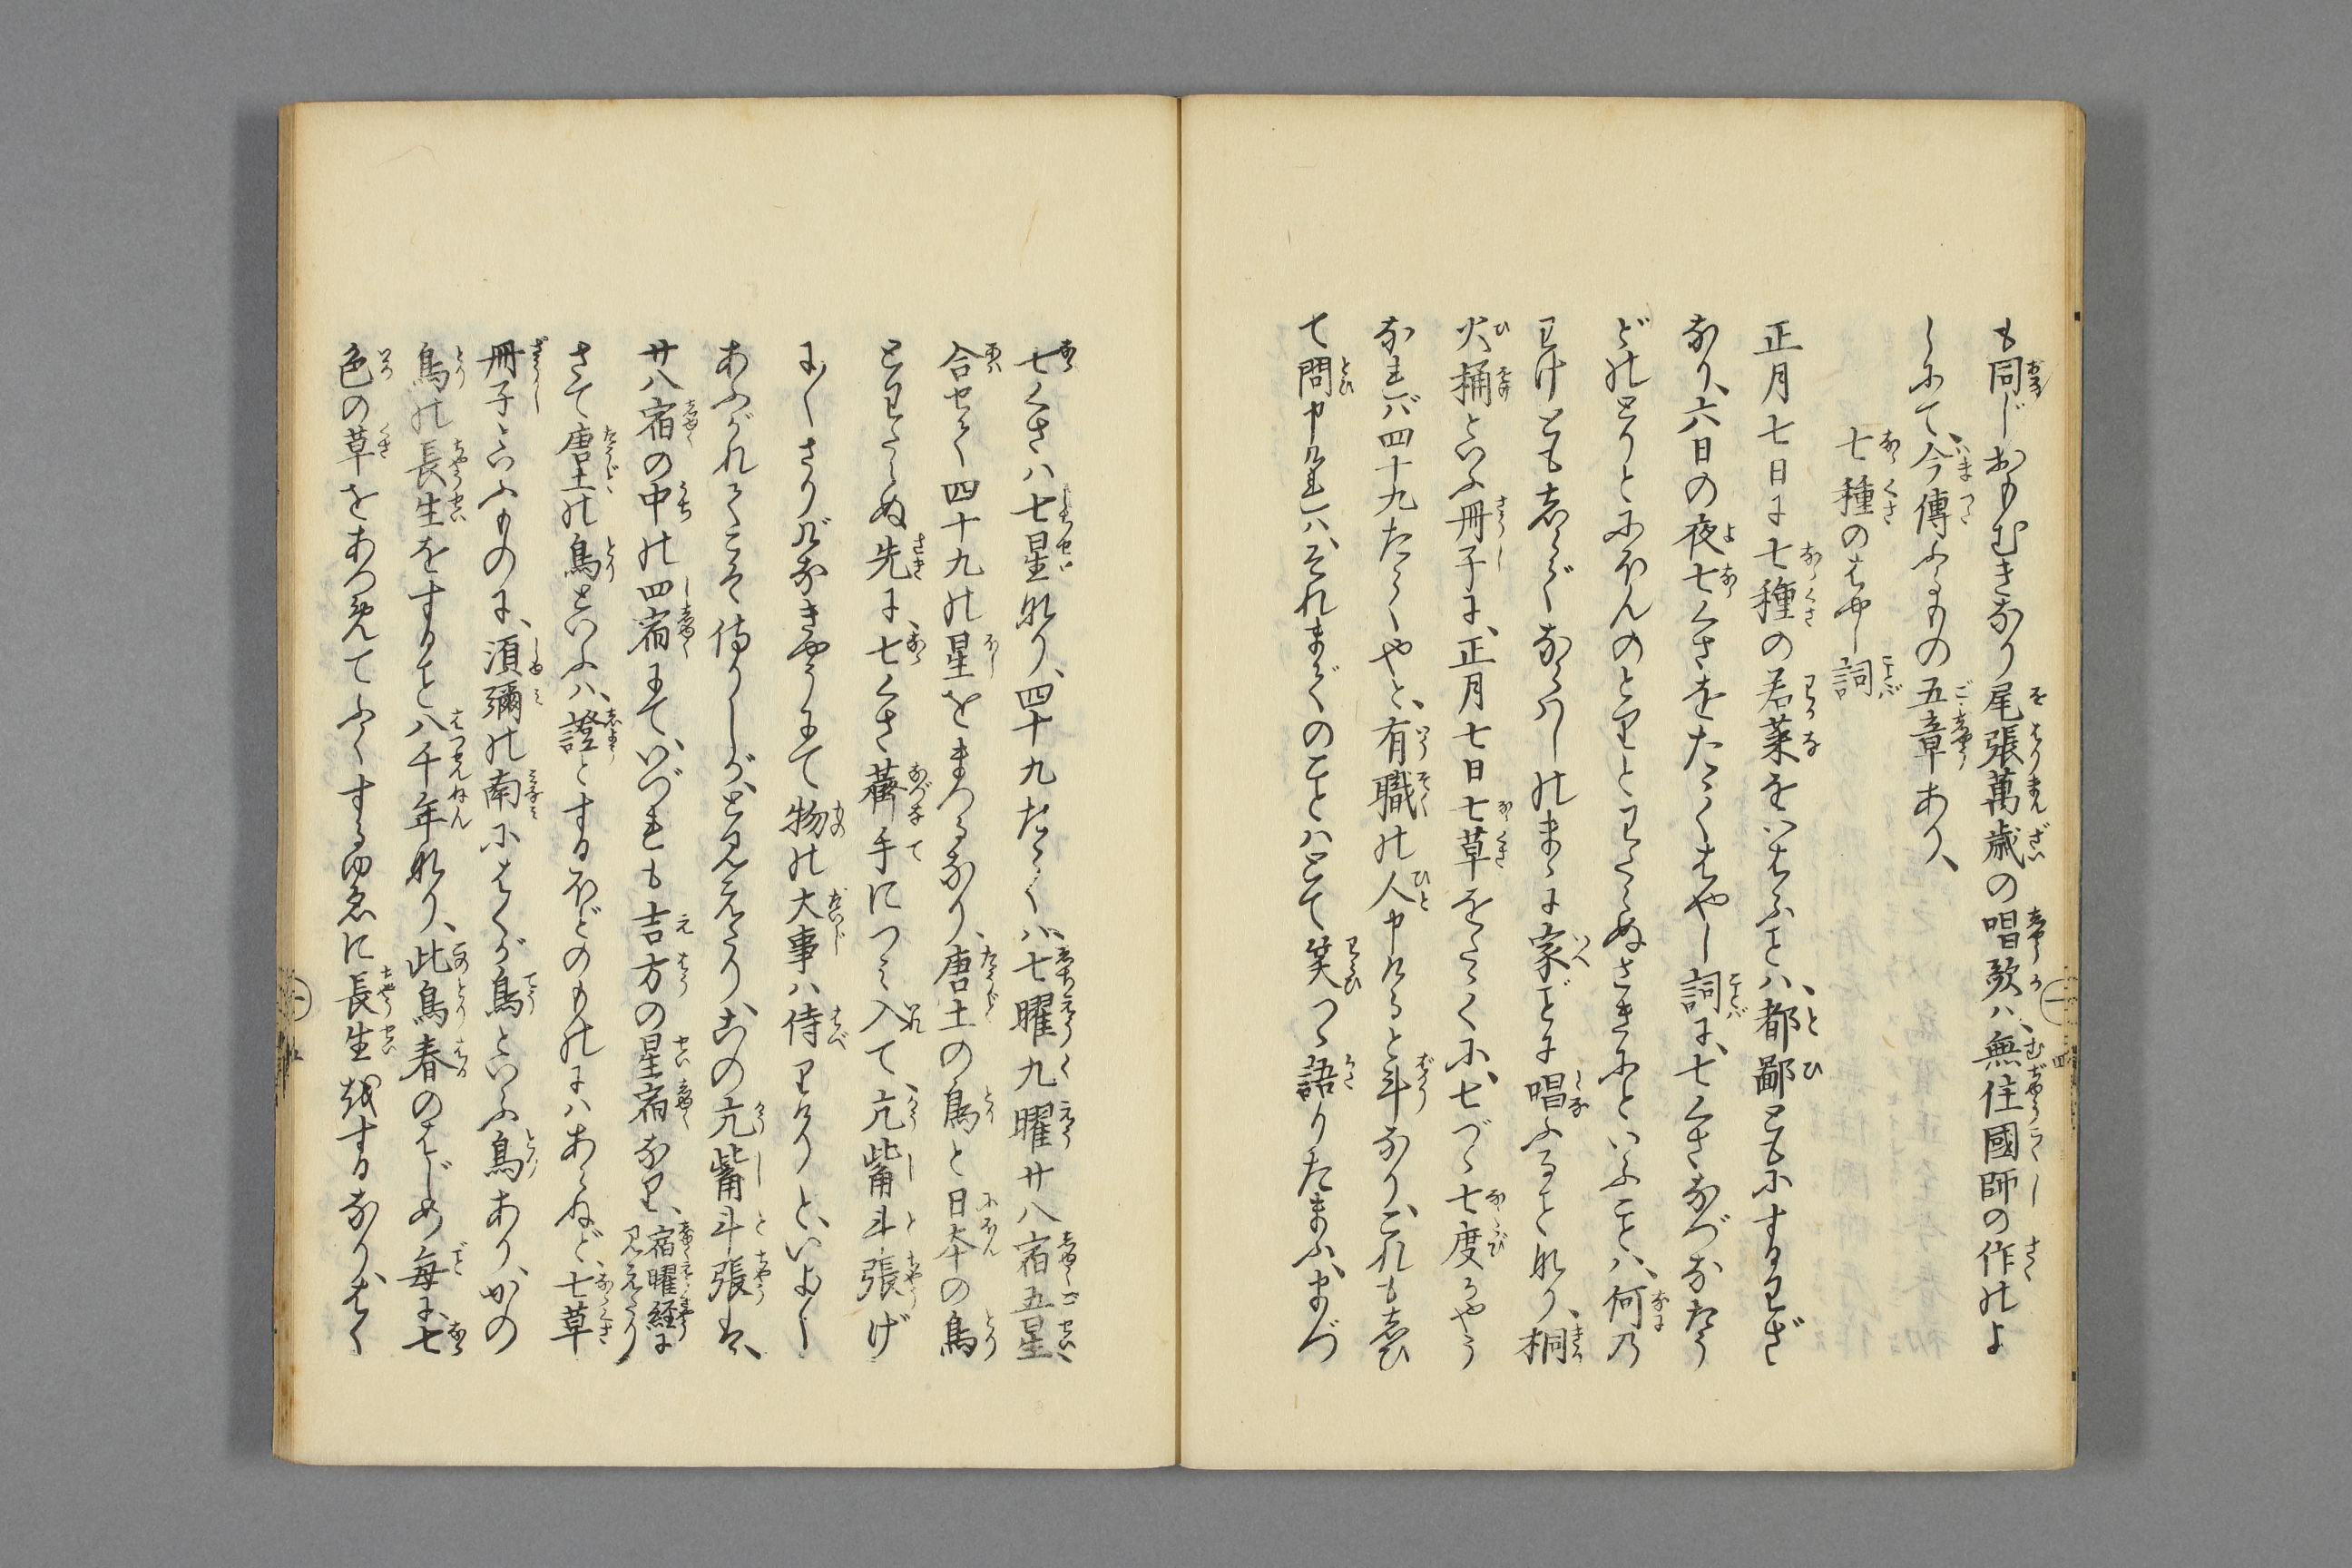 も同じおもむきなり尾張萬歳の唱歌ハ、無住國師の作のよ
しにて、今傳ふるもの五章あり、
七種のはやし詞
正月七日に七種の若菜をいはふことハ、都鄙ともにするわざ
なり、六日の夜七くさをたゝくはやし詞に、七くさなづなたう
どのとりとにほんのとりとわたらぬさきにといふことハ、何乃
わけともしらでならハしのまゝに家ごとに唱ふることなり、桐
火桶といふ冊子に、正月七日七草をたゝくに、七づゝ七度かやう
なれバ四十九たゝくやと、有職の人申けると斗なり、これも志ひ
て問申けれハ、それまでのことハとて笑つゝ語りたまふ、まづ
七くさハ七星なり、四十九たゝくハ、七曜九曜廿八宿五星
合せて四十九の星をまつるなり、唐土の鳥と日本の鳥
とわたらぬ先に、七くさ薺手につみ入て、亢觜斗張げ
にくさりげなきやうにて物の大事ハ侍りけりと、いよ〳〵
あふがれてこそ侍りしが、と見えたり、右の亢觜斗張は、
廿八宿の中の四宿にて、いづれも吉方の星宿なり、宿曜経に
見えたり
さて唐土の鳥といふハ、證とするほどのものにハあらねど、七草
冊子といふものに、須彌の南にはくが鳥といふ鳥あり、かの
鳥の長生をすること八千年なり、此鳥春のはじめ毎に、七
色の草をあつめてふくするゆゑに長生をするなり、はく